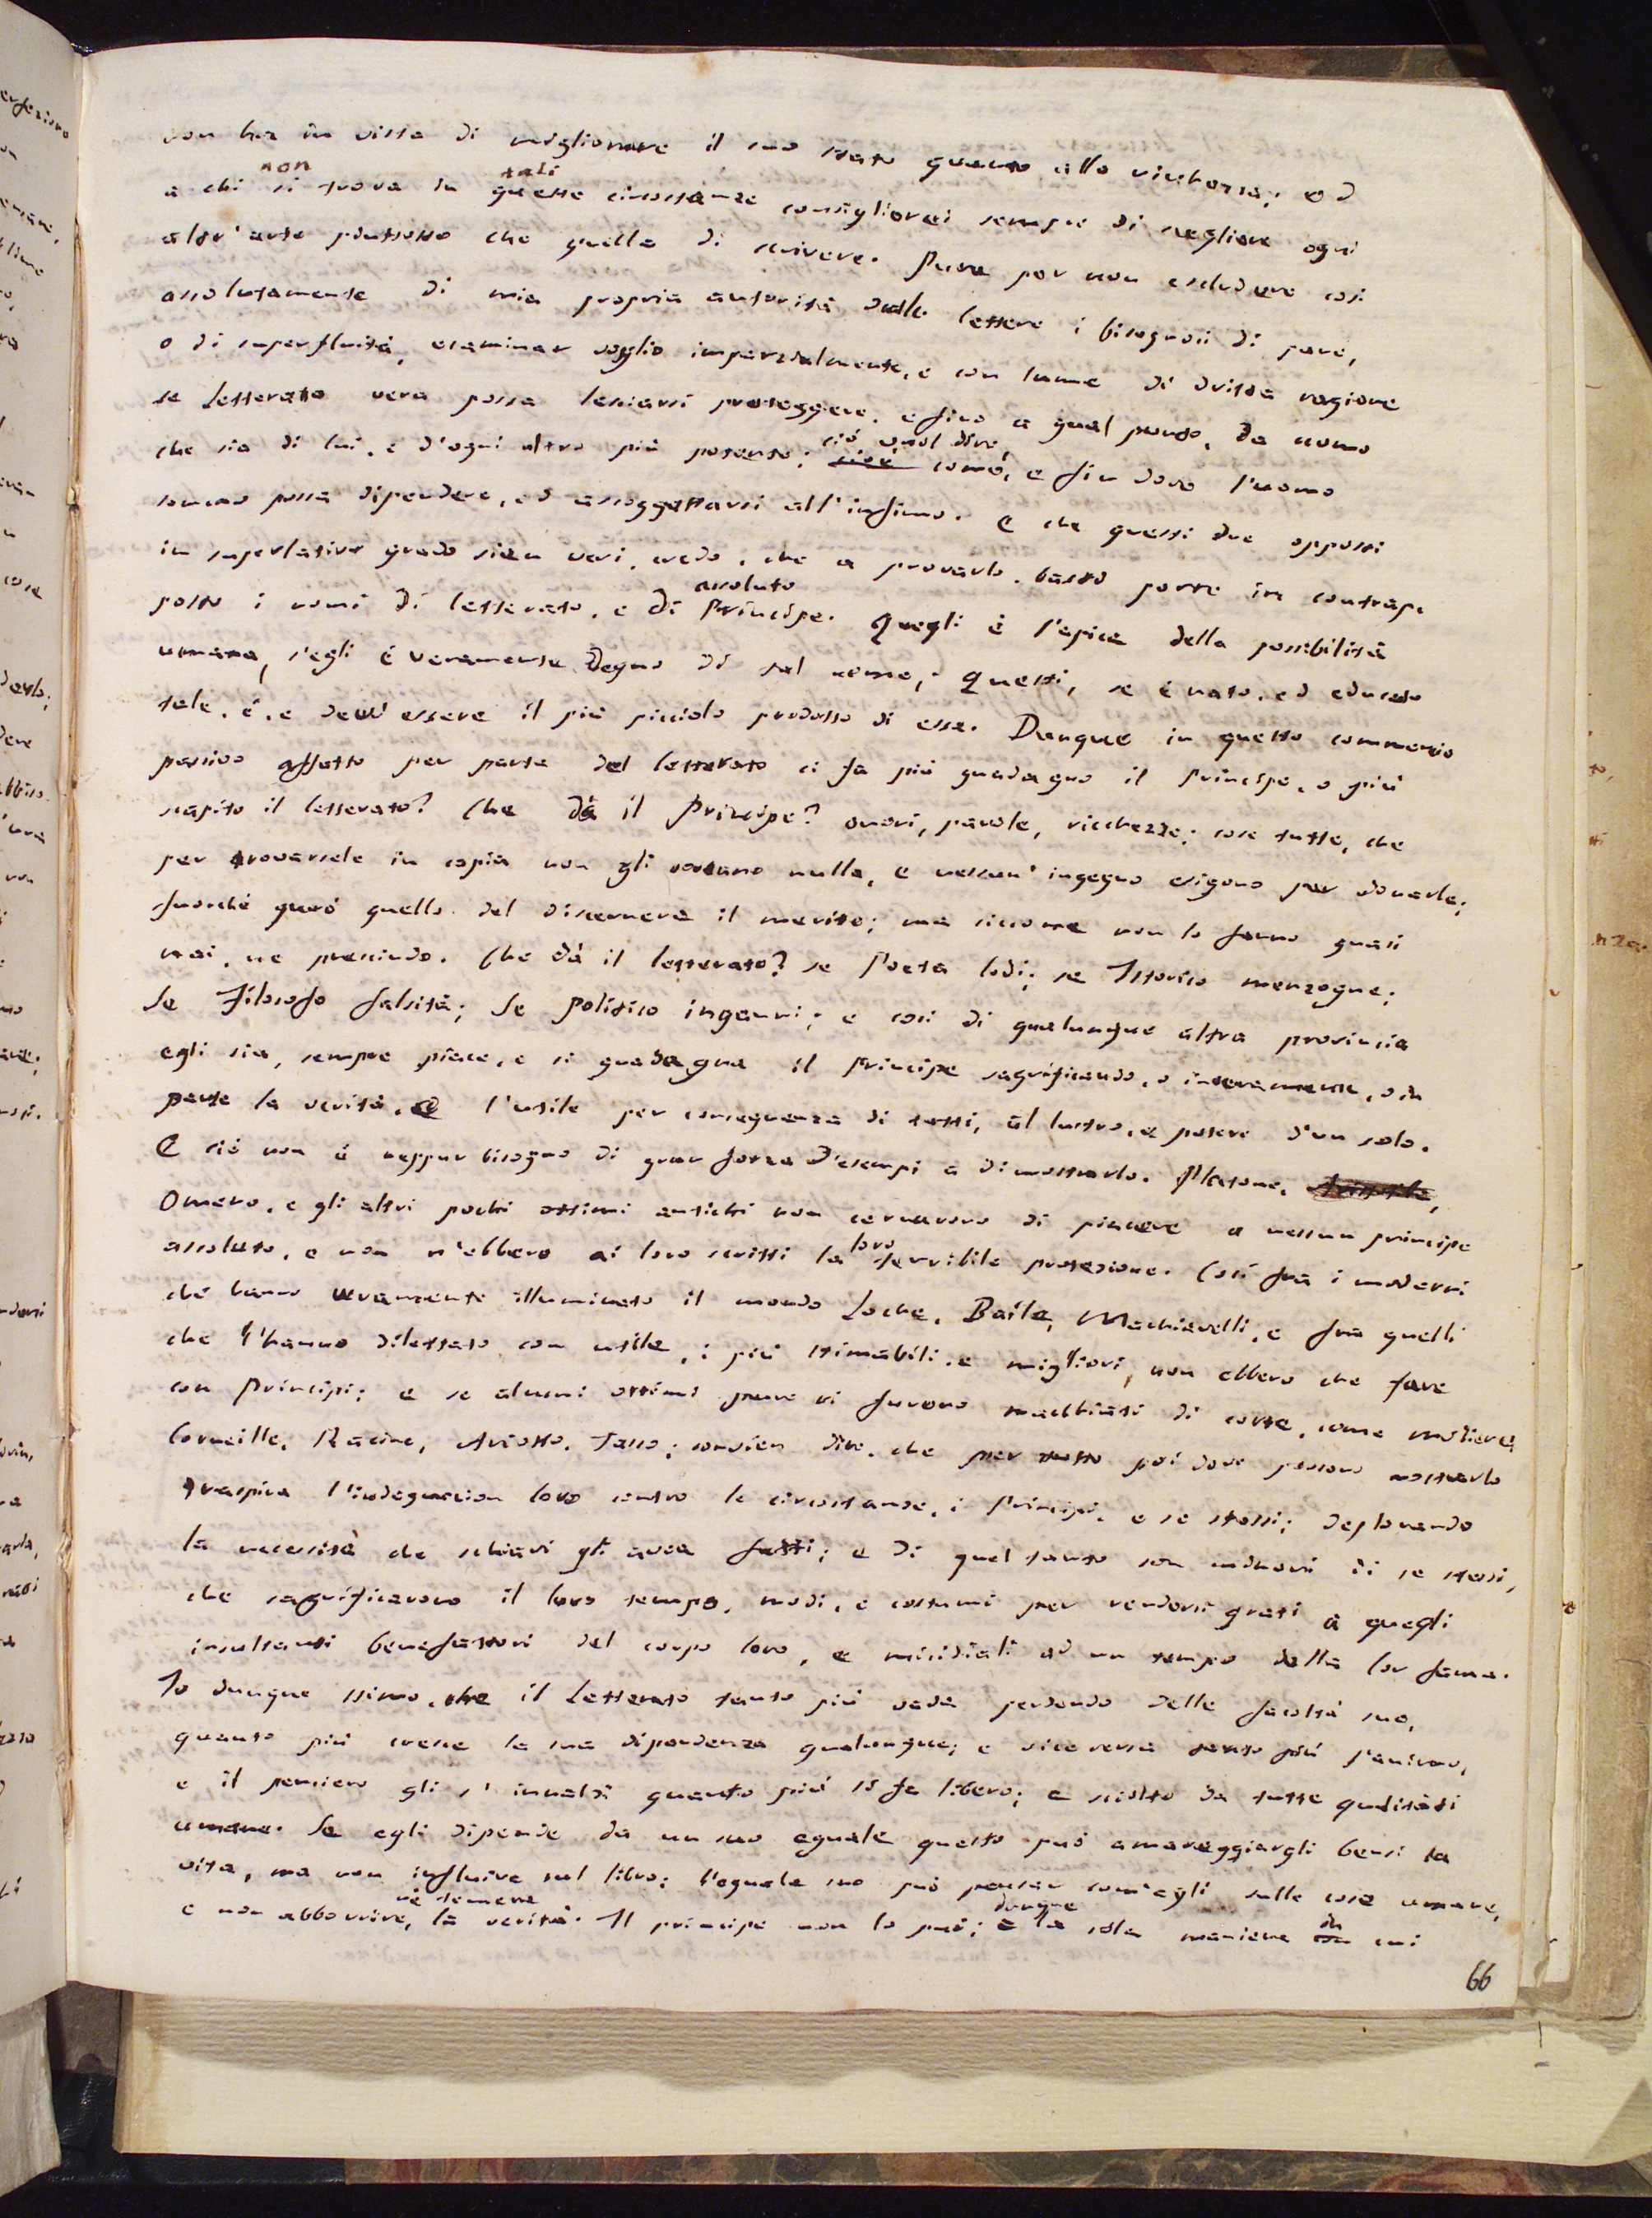 non ha in vista di migliorare il suo stato quanto alla ricchezza; ed
non tali
a chi si trova in queste circostanze consiglierei sempre di scegliere ogni
altr'arte piuttosto che quella di scrivere. Pure per non escludere così
assolutamente di mia propria autorità dalle lettere i bisognosi di pane,
o di superfluità, esaminar voglio imparzialmente, e con lume di dritta ragione
se letterato vero possa lasciarsi proteggere, e fino a qual punto, da uomo
ciò vuol dire,
che sia di lui, e d'ogni altro più potente; cioè come, e fin dove l'uomo
sommo possa dipendere, ed assoggettarsi all'infimo. E che questi due opposti
in superlativo grado sian veri, credo, che a provarlo, basti porre in contrap=
assoluto
posto i nomi di letterato, e di Principe. Quegli è l'apice della possibilità
umana, s'egli è veramente degno di tal nome; Questi, se è nato, ed educato
tale, è, e dev'essere il più picciolo prodotto di essa. Dunque in questo commercio
passivo affatto per parte del letterato ci fa più guadagno il Principe, o più
scapito il letterato? Che dà il Principe? onori, parole, ricchezze; cose tutte, che
per trovarsele in copia non gli costano nulla, e nessun' ingegno esigono per donarle;
fuorchè però quello del discernere il merito; ma siccome non lo fanno quasi
mai, ne prescindo. Che dà il letterato? se Poeta lodi; se Istorico menzogne;
Se Filosofo falsità; Se Politico inganni; e così di qualunque altra provincia
egli sia, sempre piace, e si guadagna il Principe sagrificando, o interamente, o in
parte la verità, e l'utile per conseguenza di tutti, al lustro, e potere d'un solo.
E ciò non è neppur bisogno di gran forza d'esempi a dimostrarlo. Platone,
Omero, e gli altri pochi ottimi antichi non cercarono di piacere a nessun principe
loro
assoluto, e non n'ebbero ai loro scritti la terribile protezione. Così fra i moderni
che hanno veramente illuminato il mondo Loche, Baile, Machiavelli, e fra quelli
che l'hanno dilettato con utile, i più stimabili, e migliori, non ebbero che fare
con Principi; e se alcuni ottimi pure vi furono macchiati di corte, come Moliere,
Corneille, Racine, Ariosto, Tasso; convien dire, che per tutto poi dove possono mostrarlo
traspira l'indegnazion loro contro le circostanze, i Principi, e se stessi; deplorando
la necessità che schiavi gli avea fatti; e di quel tanto son minori di se stessi,
che sagrificarono il loro tempo, modi, e costumi per rendersi grati a quegli
insultanti benefattori del corpo loro, e micidiali ad un tempo della lor fama.
Io dunque stimo, che il Letterato tanto più vada perdendo delle facoltà sue,
quanto più cresce la sua dipendenza qualunque; e viceversa tanto più l'animo,
e il pensiero gli s'innalzi quanto più si fa libero; e sciolto da tutte qualità di
umane. Se egli dipende da un suo eguale questo può amareggiargli bensì la
vita, ma non influire sul libro; l'eguale suo può pensar com'egli sulle cose umane,
nè temere dunque in
e non abborrire, la verità. Il principe non lo può; e la sola maniera in cui
66